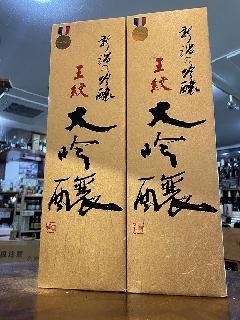 新潟の吟醸
王紋
大吟醸
新潟の吟醸
王紋
大吟醸